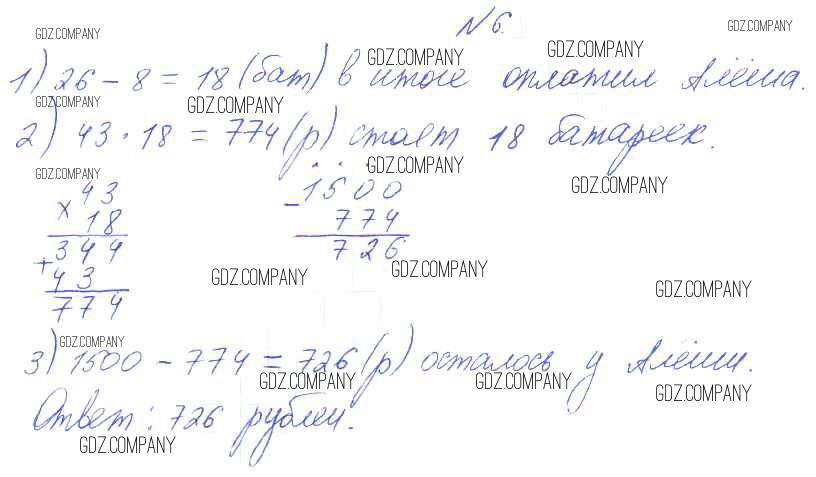 N 6.
GDZ.COMPANY GDZ.COMPANY GDZ.COMPANY GDZ.COMPANY
1) 26 - 8 = 18 (бат) в итоге оплатил Алёша.
GDZ.COMPANY GDZ.COMPANY
2) 43 · 18 = 774 (р) стоят 18 батареек.
GDZ.COMPANY GDZ.COMPANY GDZ.COMPANY
× 43 - 1500
18 774
344 726
+ 43
774
GDZ.COMPANY GDZ.COMPANY GDZ.COMPANY
GDZ.COMPANY
3) 1500 - 774 = 726 (р) осталось у Алёши.
GDZ.COMPANY GDZ.COMPANY GDZ.COMPANY
Ответ: 726 рублей.
GDZ.COMPANY